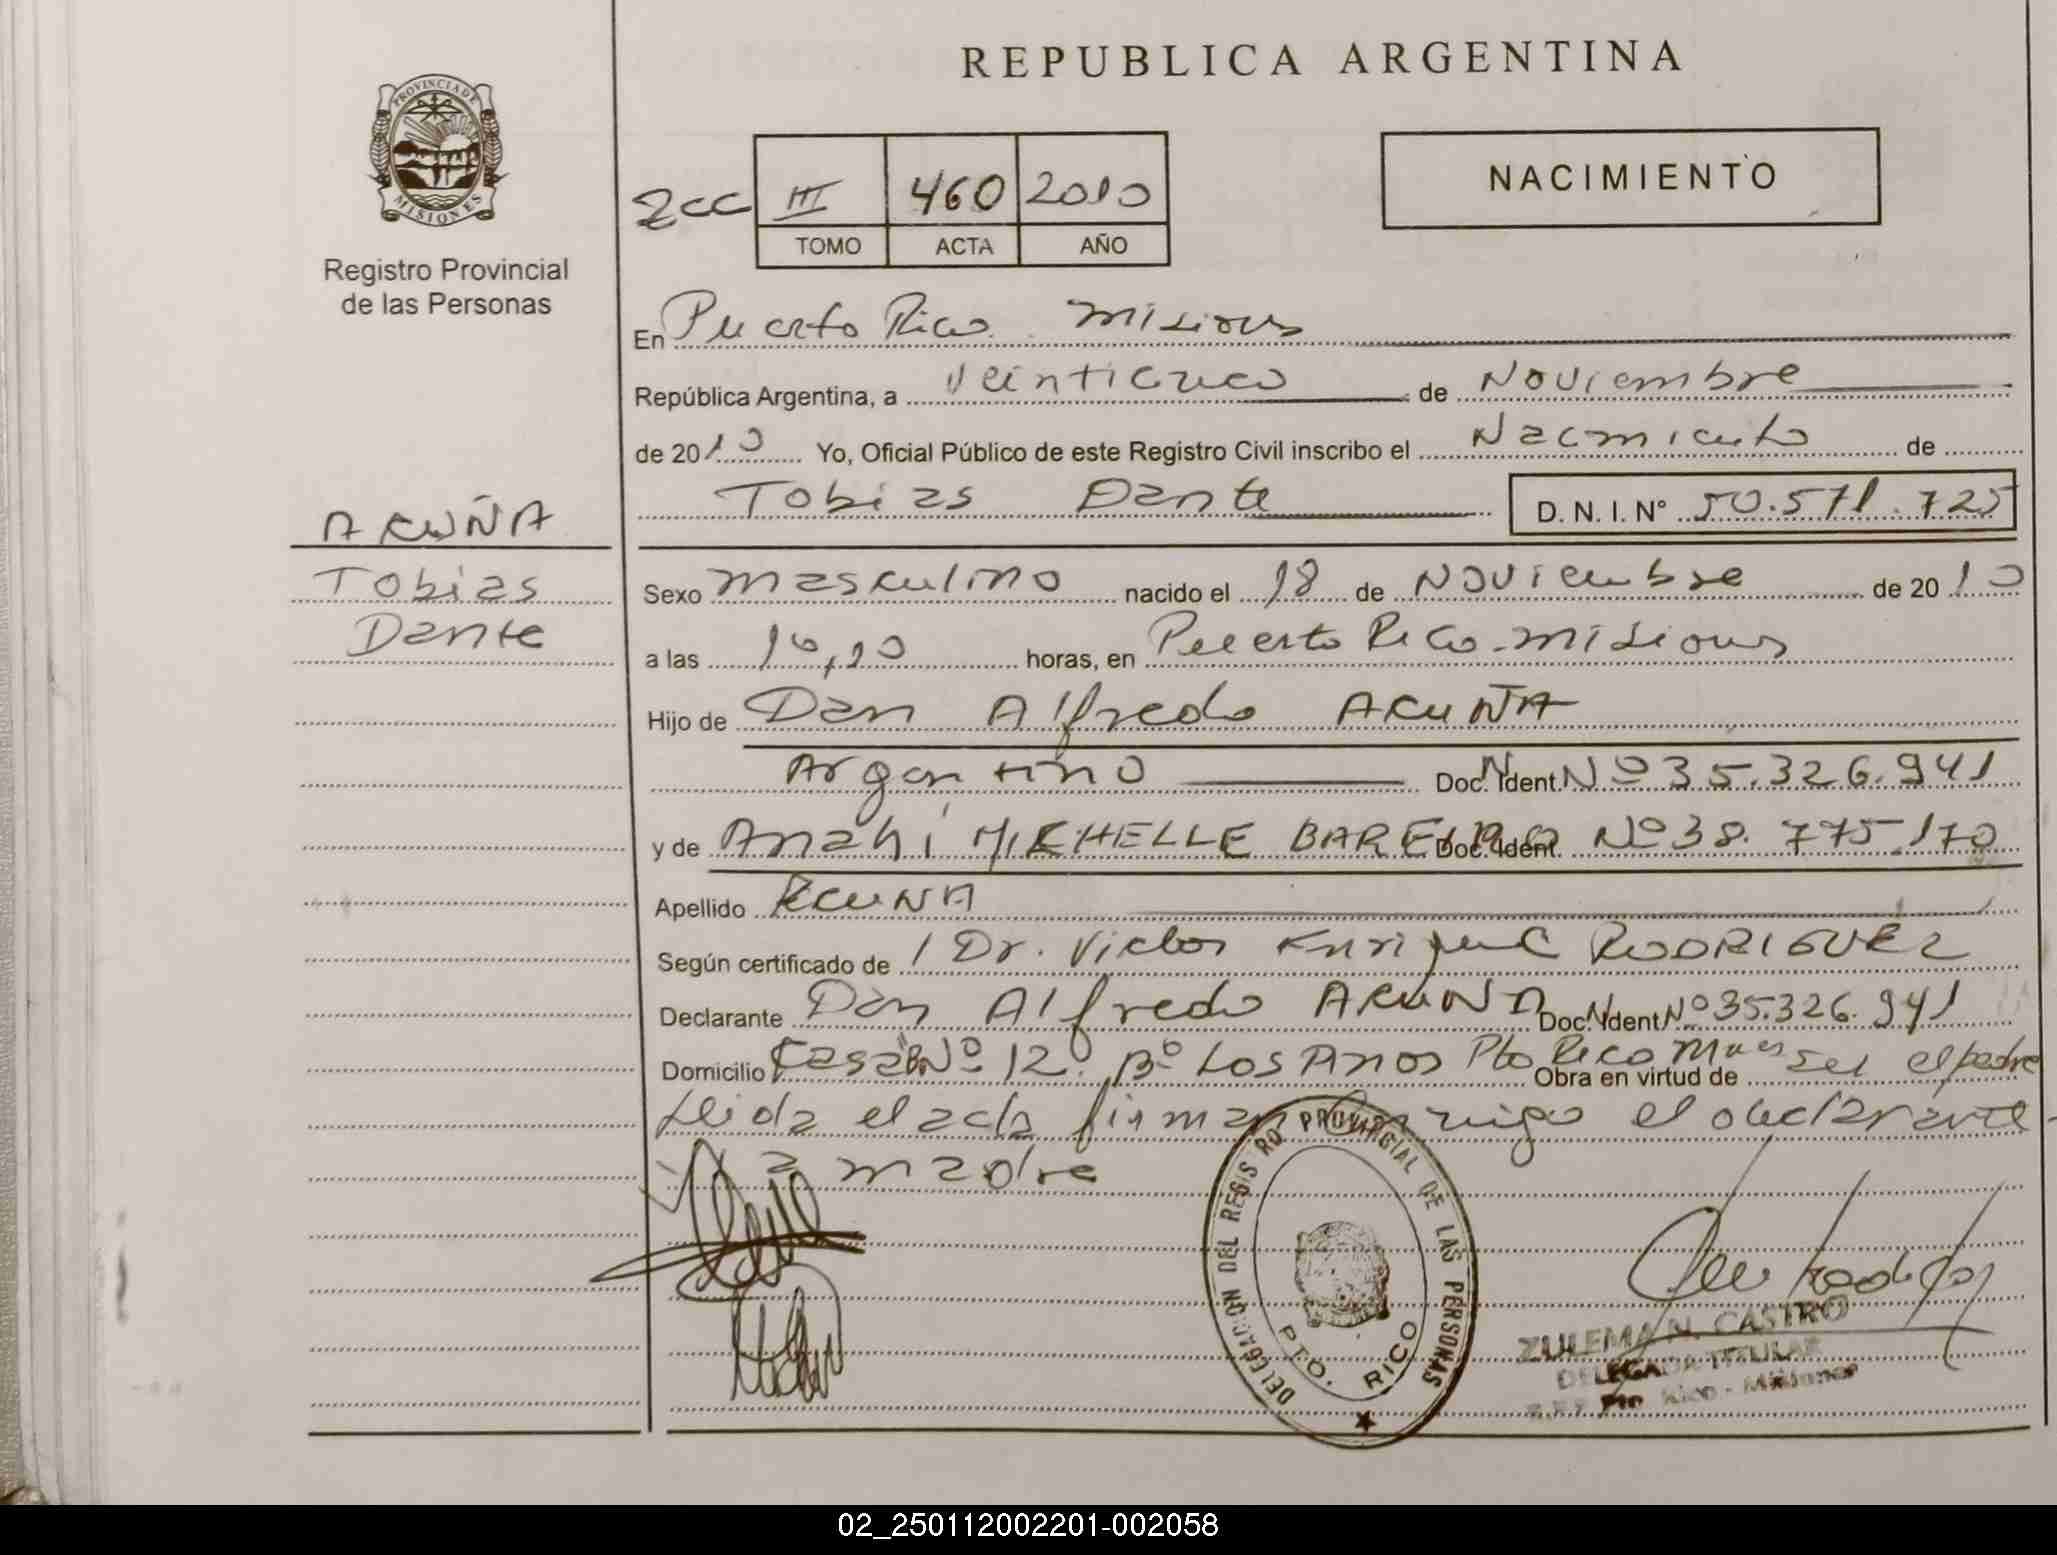 REPUBLICA ARGENTINA
PROVINCIA DE
MISIONES
Registro Provincial
de las Personas
2cc III 460 2010
TOMO ACTA AÑO
NACIMIENTO
En Puerto Rico. Misiones
República Argentina, a Veinticinco de Noviembre
de 2010 Yo, Oficial Público de este Registro Civil inscribo el Nacimiento de
Tobias Dante D. N. I. N° 50.571.725
ACUÑA
Tobias
Dante
Sexo masculino nacido el 18 de Noviembre de 2010
a las 10,10 horas, en Puerto Rico-Misiones
Hijo de Dan Alfredo ACUÑA
Argentino Doc. Ident. Nº 35.326.941
y de Anahi MICHELLE BAREIRO Doc. Ident. Nº 38.775.170
Apellido ACUNA
Según certificado de Dr. Victor Enrique RODRIGUEZ
Declarante Dan Alfredo ACUNA Doc. Ident. Nº 35.326.941
Domicilio Casa Nº 12. Bº Los Pto Rico Mnes Obra en virtud de ser el padre
Leida el acta firman conmigo el declarante
Y la madre
DELEGACION DEL REGISTRO PROVINCIAL DE LAS PERSONAS
PTO. RICO
ZULEMA N. CASTRO
DELEGADA TITULAR
Pto Rico - Misiones
02_250112002201-002058